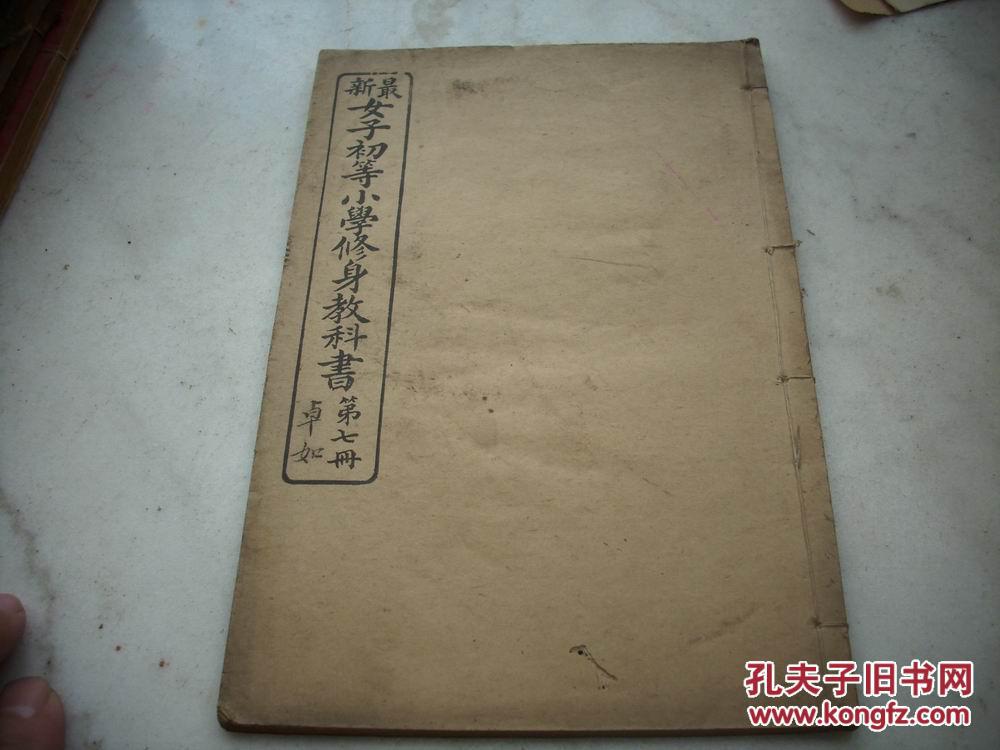 最新
女子初等小學修身教科書
第七冊
卓如
孔夫子旧书网
www.kongfz.com